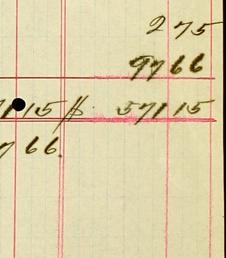 2 75
97 66
7115 $ 571 15
7 66.